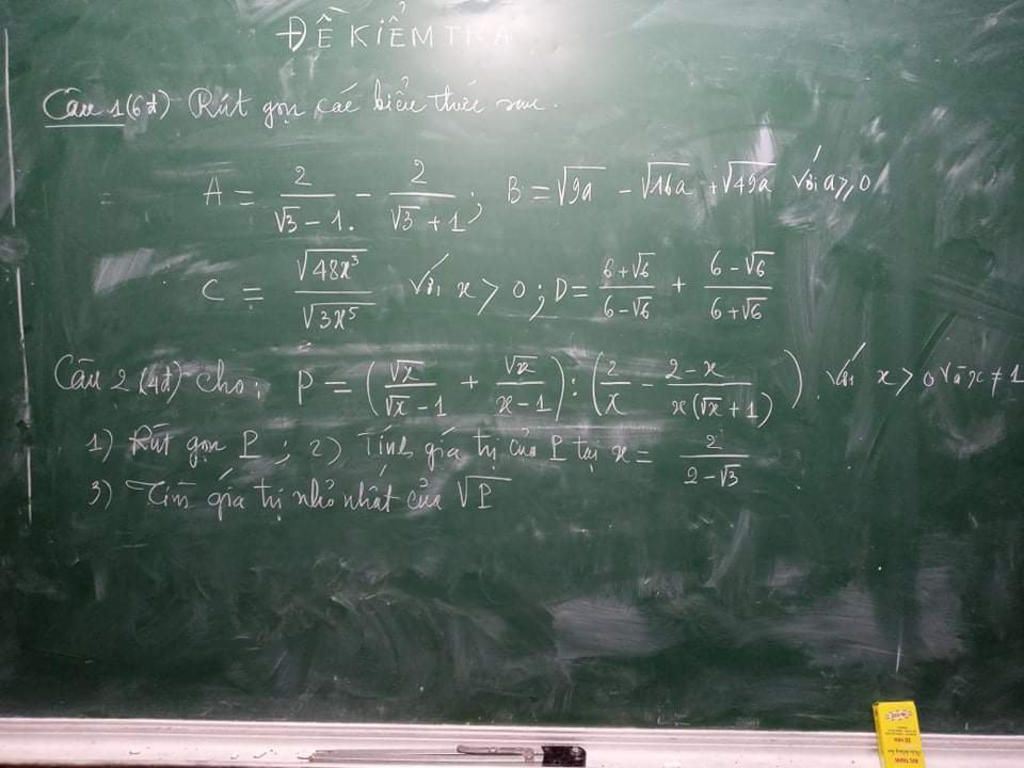 ĐỀ KIỂM TRA
Câu 1 (6đ) Rút gọn các biểu thức sau.
A = 2/(√3 - 1) - 2/(√3 + 1); B = √9a - √16a + √49a với a ≥ 0
C = √48x³/√3x⁵ với x > 0; D = (6+√6)/(6-√6) + (6-√6)/(6+√6)
Câu 2 (4đ) Cho: P = (√x/(√x - 1) + √x/(x - 1)) : (2/x - (2-x)/(x(√x + 1))) với x > 0 và x ≠ 1
1) Rút gọn P; 2) Tính giá trị của P tại x = 2/(2-√3)
3) Tìm giá trị nhỏ nhất của √P